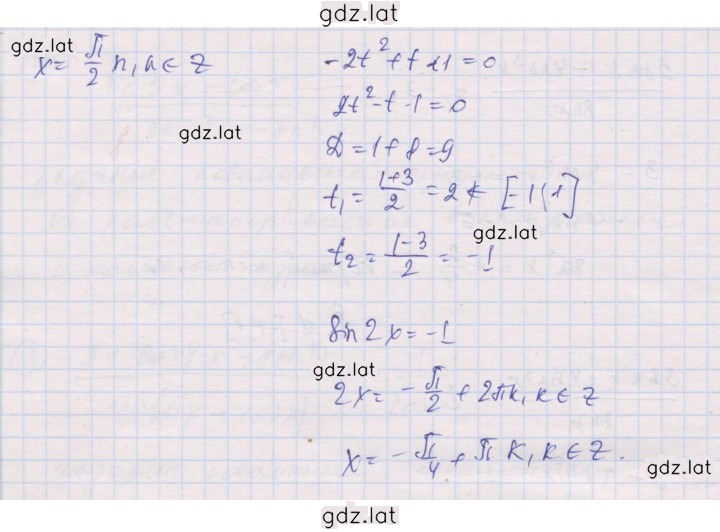 gdz.lat
gdz.lat
x = π/2 n, n ∈ Z
gdz.lat
-2t² + t + 1 = 0
2t² - t - 1 = 0
D = 1 + 8 = 9
t₁ = (1+3)/2 = 2 ∉ [-1; 1]
gdz.lat
t₂ = (1-3)/2 = -1
sin 2x = -1
gdz.lat
2x = -π/2 + 2πk, k ∈ Z
x = -π/4 + πk, k ∈ Z.
gdz.lat
gdz.lat